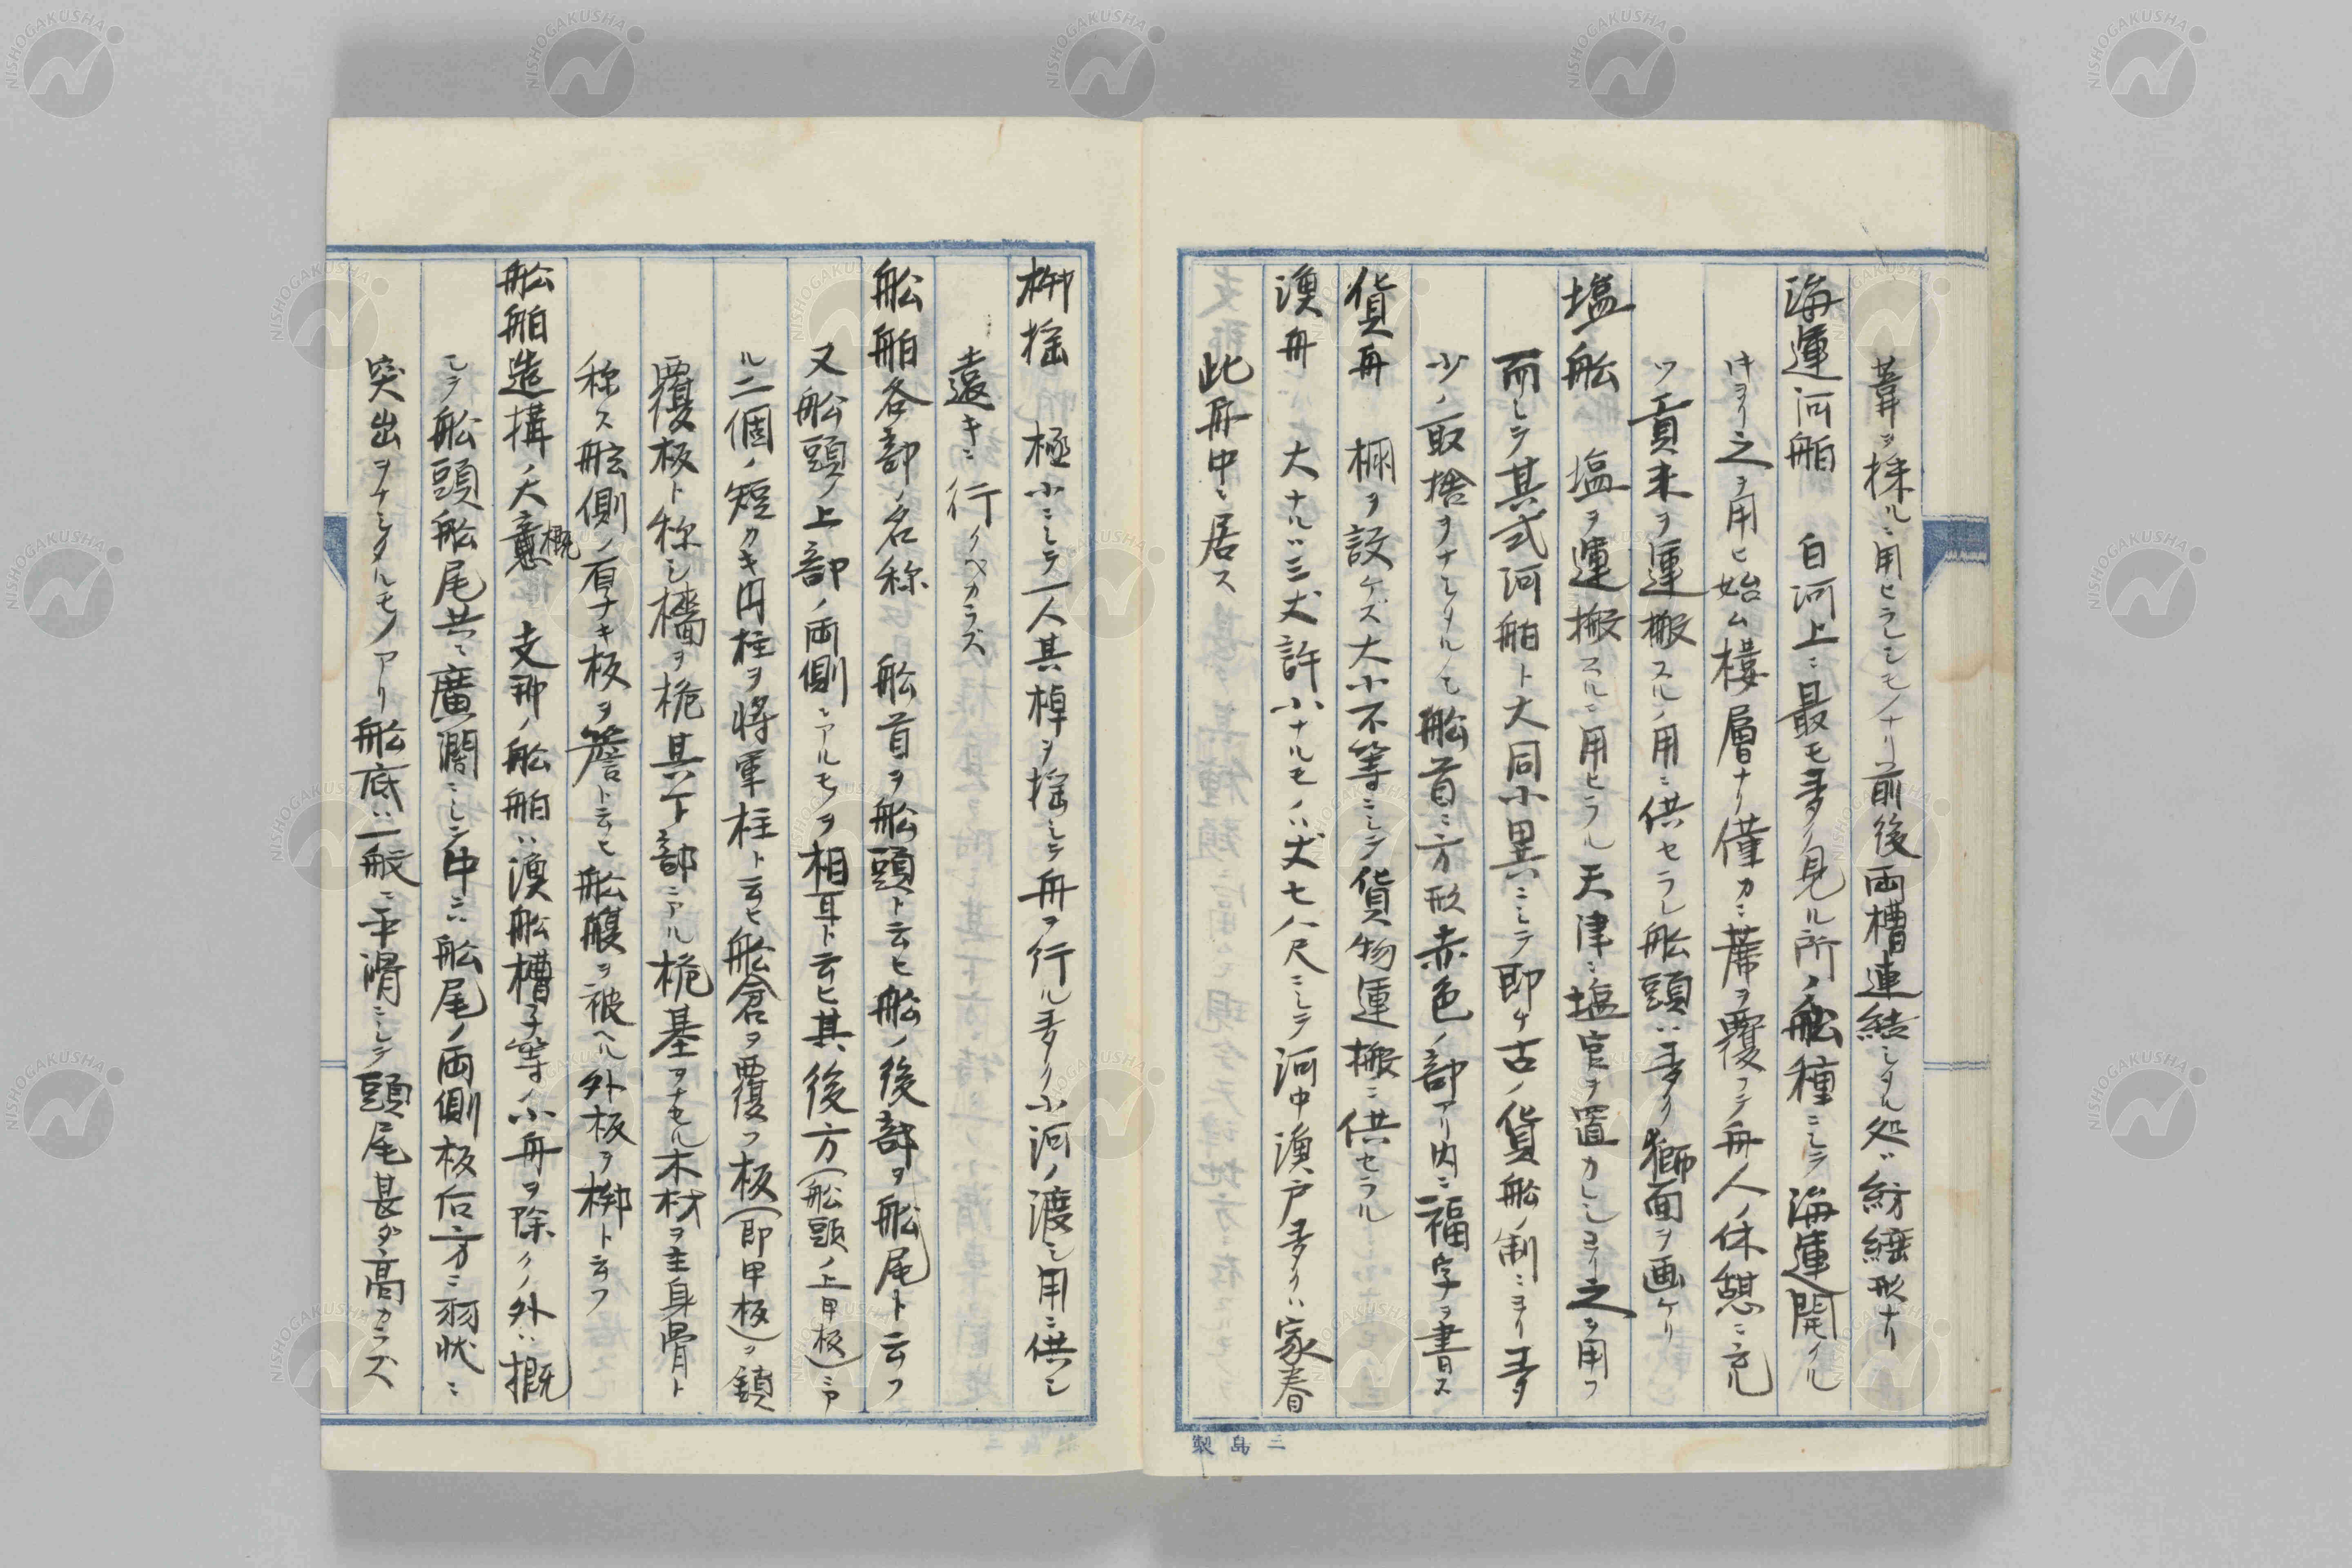 葦ヲ採ルニ用ヒラレシモノナリ前後両槽連結シタル処ハ紡繧形ナリ
海運河舶　白河上ニ最モ多ク見ル所ノ舩種ニシテ海運開クル
ヤヨリ之ヲ用ヒ始ム楼層ナリ僅カニ蓆ヲ覆フテ舟人ノ休憩ニ充
ツ貢米ヲ運搬スルノ用ニ供セラレ舩頭ハ多ク獅面ヲ画ケリ
塩舩　塩ヲ運搬スルニ用ヒラル天津ニ塩官ヲ置カレシヨリ之ヲ用フ
而シテ其式河舶ト大同小異ニシテ即チ古ノ貨舩ノ制ニヨリ多
少ノ取捨ヲナシタルノモ舩首ニ方形赤色ノ部アリ内ニ福字ヲ書ス
貨舟　棚ヲ設ケズ大小不等ニシテ貨物運搬ニ供セラル
漁舟　大ナルハ三丈許小ナルモノハ丈七八尺ニシテ河中漁戸多クハ家眷
此舟中ニ居ス
栁揺　極小ニシテ一人其棹ヲ揺シテ舟ヲ行ル多ク小河ノ渡シ用ニ供シ
遠キニ行クベカラズ
舩舶各部ノ名称　舩首ヲ舩頭ト云ヒ舩ノ後部ヲ舩尾ト云フ
又舩頭ノ上部ノ両側ニアルモノヲ相耳ト云ヒ其後方（舩頭ノ上甲板）ニア
ル二個ノ短カキ円柱ヲ将軍柱ト云ヒ舩倉ヲ覆フ板（即甲板）ヲ鎮
覆板ト称シ檣ヲ桅其下部ニアル桅基ヲナセル木材ヲ主身骨ト
称ス舷側ノ有ナキ板ヲ簷ト云ヒ舩腹ヲ被ヘル外板ヲ梆ト云フ
舩舶造構ノ大意概　支那ノ舩舶ハ漁舩槽子等ノ小舟ヲ除クノ外ハ概
シテ舩頭舩尾共ニ廣濶ニシテ中ニハ舩尾ノ両側板后方ニ羽状ニ
突出ヲナシタルモノアリ舩底ハ一般ニ平滑ニシテ頭尾甚ダ高カラズ
三島製
NISHOGAKUSHA